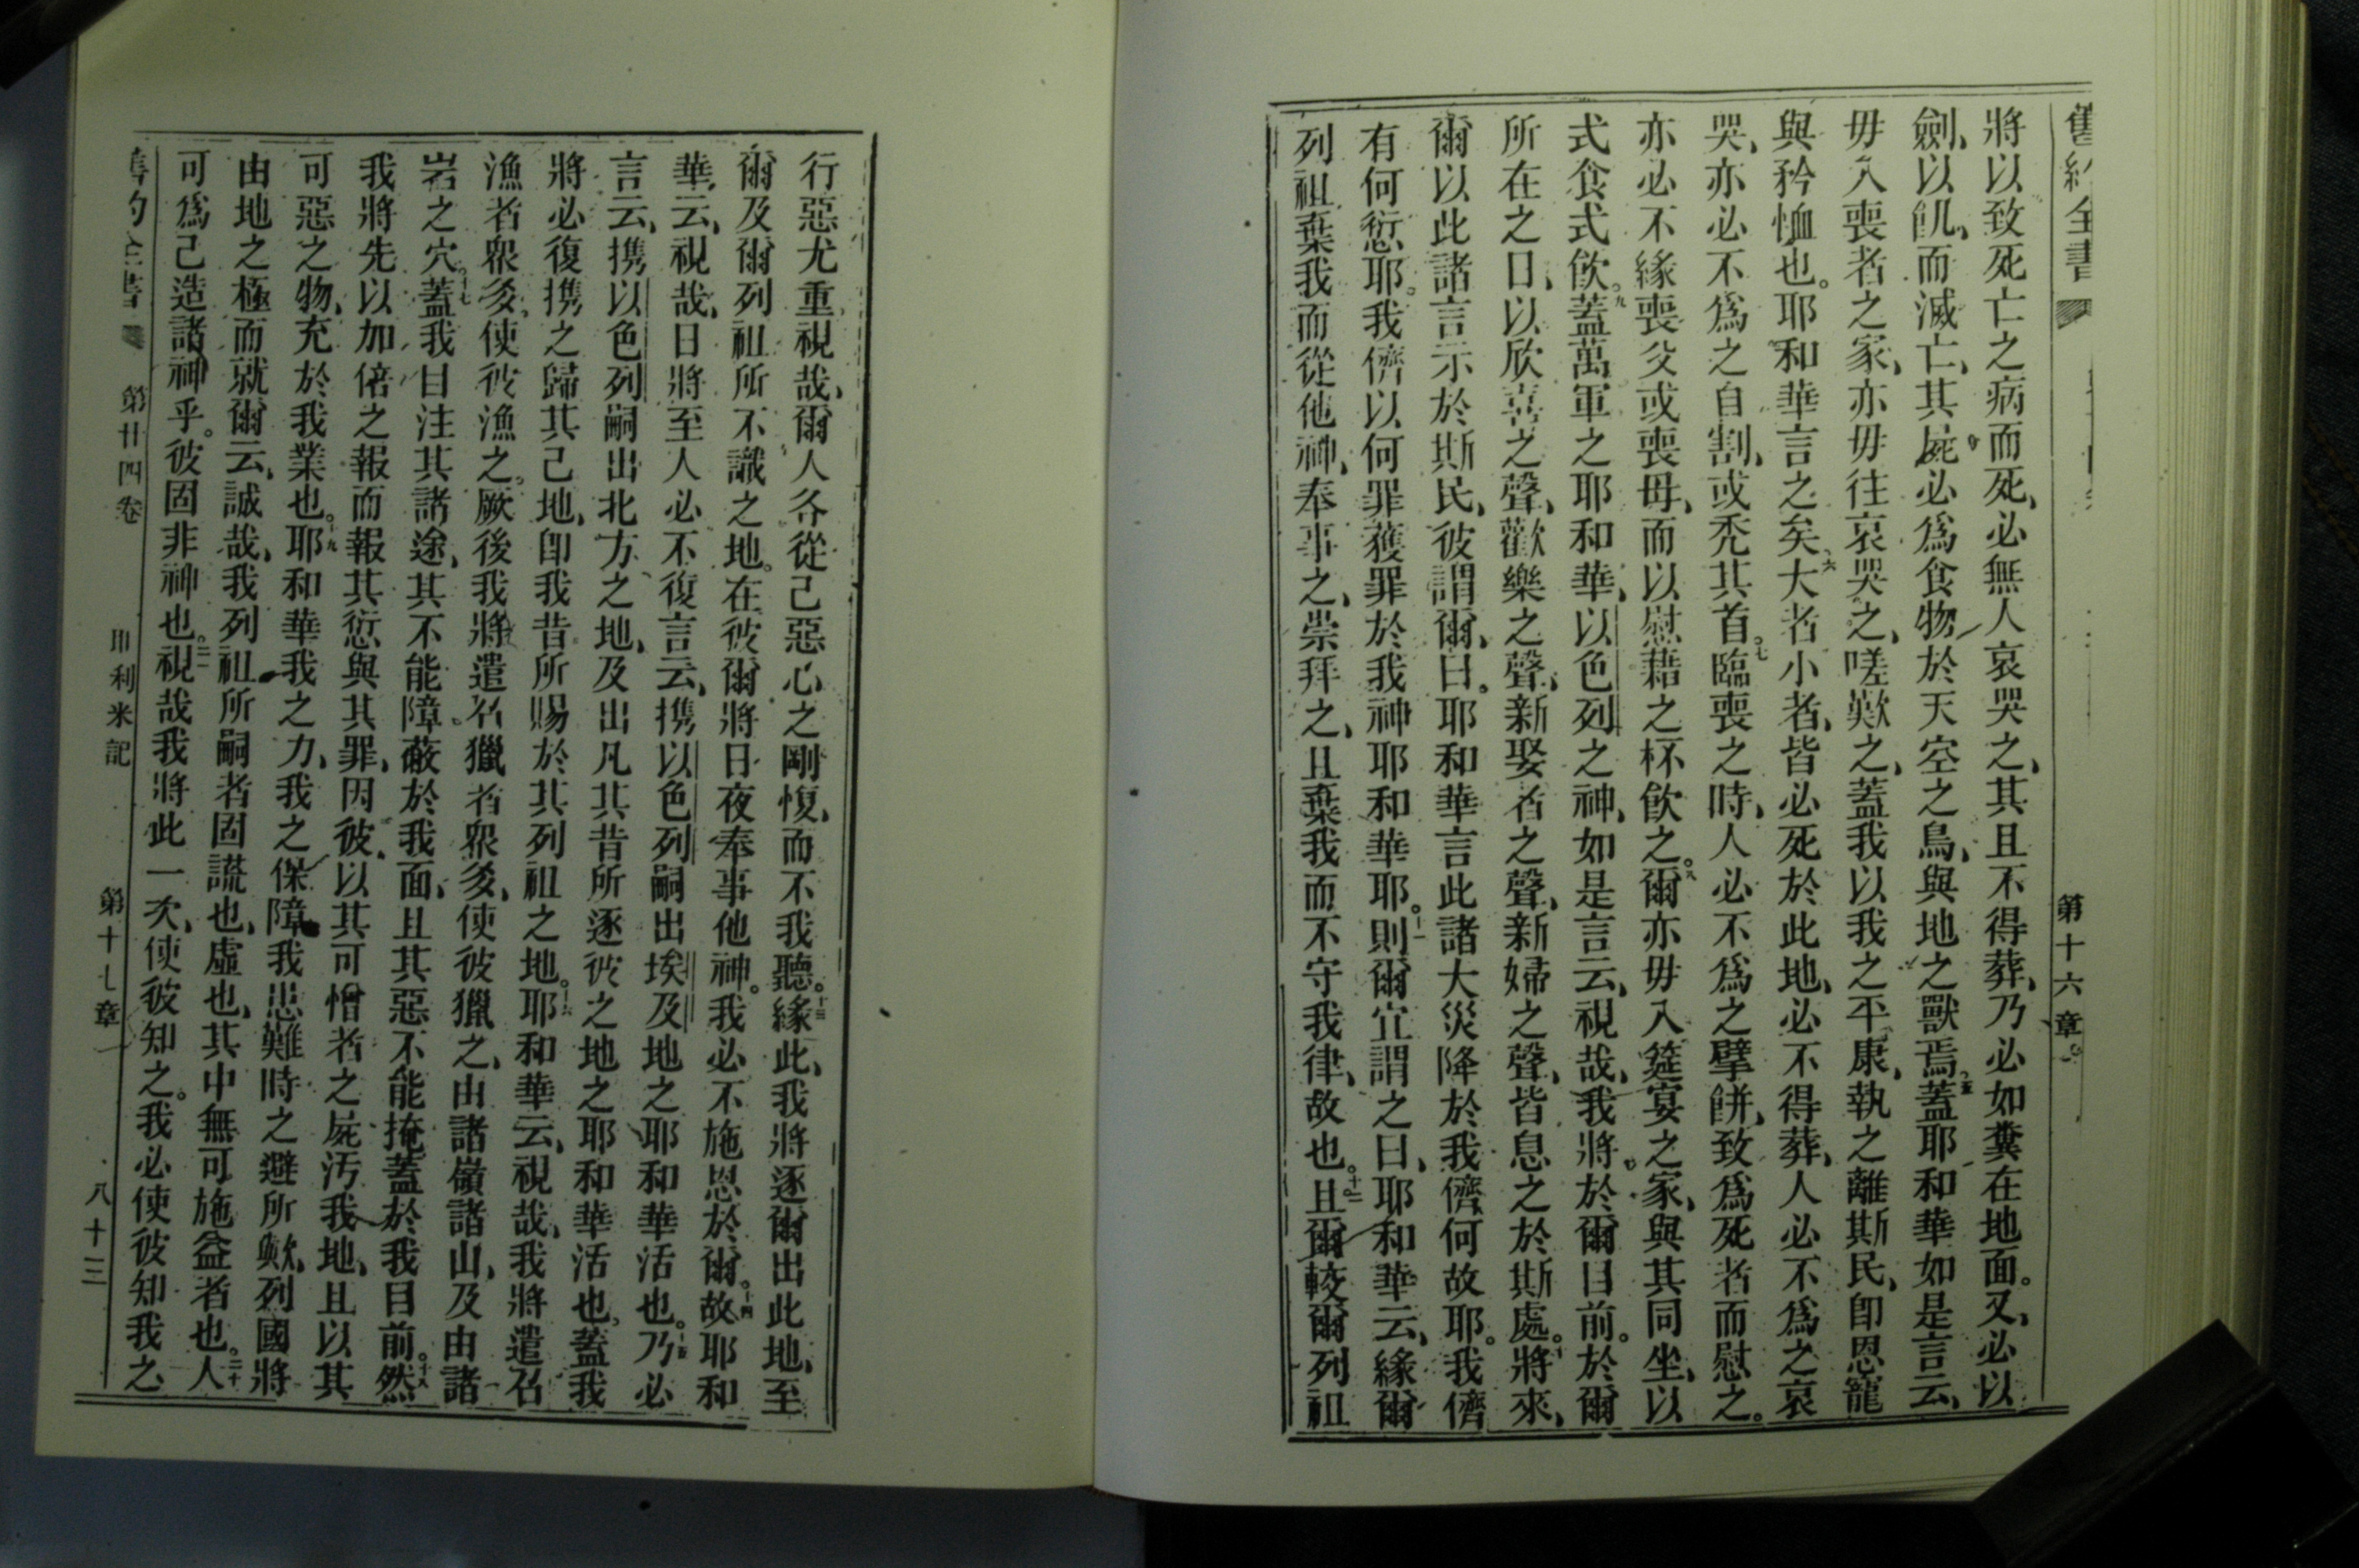 舊約全書 第十六章
將以致死亡之病而死、必無人哀哭之、其且不得葬、乃必如糞在地面。又必以
劍、以飢、而滅亡、其屍必爲食物於天空之鳥、與地之獸焉。五蓋耶和華如是言云、
毋入喪者之家、亦毋往哀哭之、嗟歎之、蓋我以我之平康、執之離斯民、卽恩寵
與矜恤也。耶和華言之矣、六大者小者、皆必死於此地、必不得葬、人必不爲之哀
哭、亦必不爲之自割、或禿其首。七臨喪之時、人必不爲之擘餅、致爲死者而慰之。
亦必不緣喪父或喪母、而以慰藉之杯飲之。八爾亦毋入筵宴之家、與其同坐、以
式食式飲。九蓋萬軍之耶和華、以色列之神、如是言云、視哉、我將於爾目前。於爾
所在之日、以欣喜之聲、歡樂之聲、新娶者之聲、新婦之聲、皆息之於斯處。十將來、
爾以此諸言示於斯民、彼謂爾曰。耶和華言此諸大災降於我儕何故耶。我儕
有何愆耶。我儕以何罪獲罪於我神耶和華耶。十一則爾宜謂之曰、耶和華云、緣爾
列祖棄我而從他神、奉事之、崇拜之、且棄我而不守我律、故也。十二且爾較爾列祖
行惡尤重、視哉、爾人各從己惡心之剛愎、而不我聽。十三緣此、我將逐爾出此地、至
爾及爾列祖所不識之地。在彼爾將日夜奉事他神。我必不施恩於爾。十四故耶和
華云、視哉、日將至人必不復言云、携以色列嗣出埃及地之耶和華活也。十五乃必
言云、携以色列嗣出北方之地、及出凡其昔所逐彼之地之耶和華活也、蓋我
將必復携之歸其己地、卽我昔所賜於其列祖之地。十六耶和華云、視哉、我將遣召
漁者衆多、使彼漁之。厥後我將遣召獵者衆多、使彼獵之、由諸嶺諸山、及由諸
岩之穴。十七蓋我目注其諸途、其不能障蔽於我面、且其惡不能掩蓋於我目前。十八然
我將先以加倍之報而報其愆與其罪、因彼以其可憎者之屍汚我地、且以其
可惡之物、充於我業也。十九耶和華我之力、我之保障、我患難時之避所歟、列國將
由地之極而就爾云、誠哉、我列祖所嗣者固謊也、虛也、其中無可施益者也。二十人
可爲己造諸神乎。彼固非神也。二一視哉我將此一次、使彼知之。我必使彼知我之
舊約全書 第廿四卷 耶利米記 第十七章 八十三